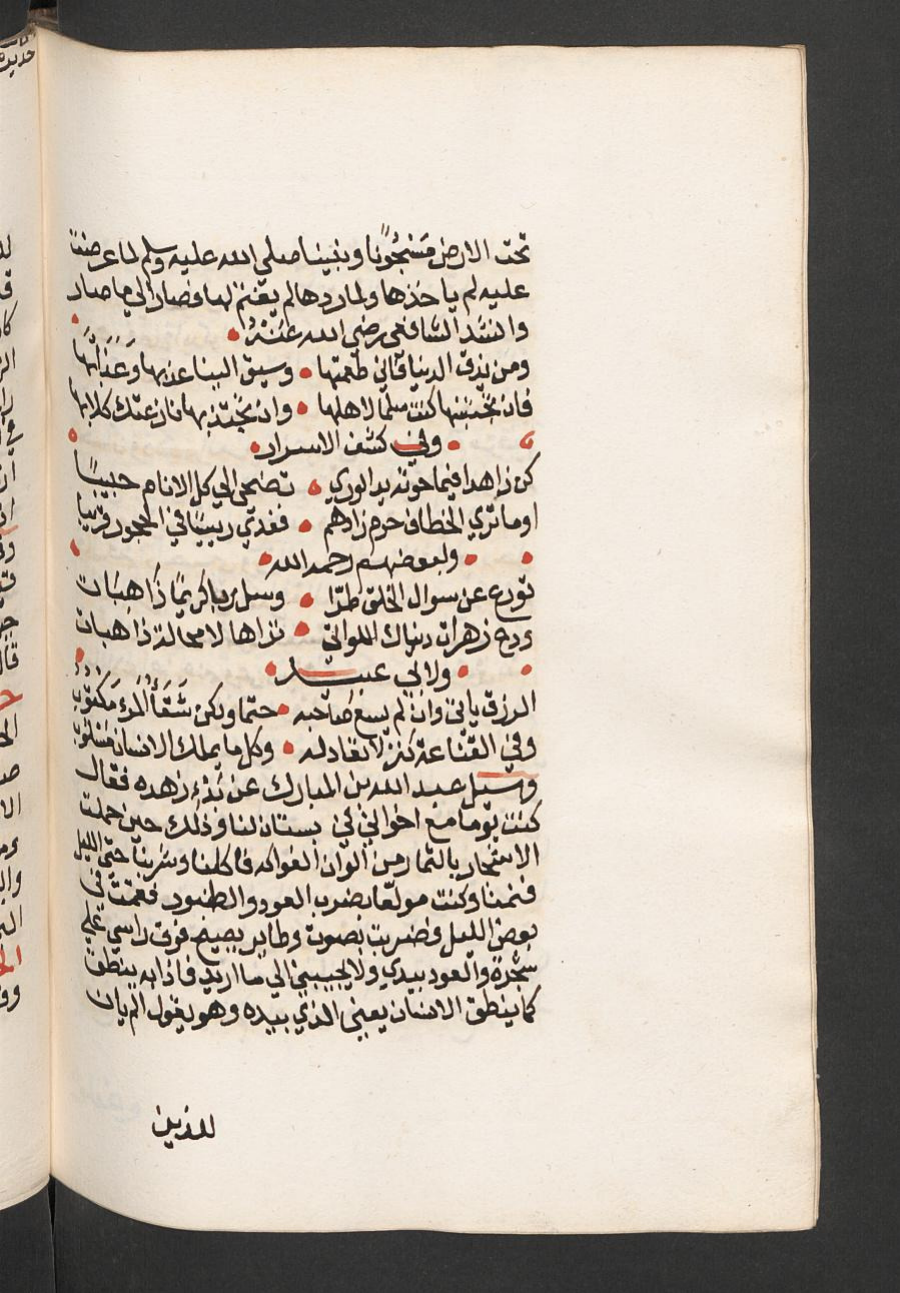 تحت الارض مسجونا ونبينا صلي الله عليه وسلم لما عرضت
عليه لم ياخذها ولما ردها لم يغتم لها فصار الي ما صار
وانشد الشافعي رضي الله عنه
ومن يذق الدنيا فاني طعمتها • وسيق الينا عذبها وعذابها
فان تجتنبها كنت سلما لاهلها • وان تجتذبها نازعتك كلابها
• وفي كشف الاسرار •
كن زاهدا فيما حوته يد الوري • تضحي الي كل الانام حبيبا
اوما تري الخطاف حرم زادهم • فغدي ربيبا في الحجور قريبا
• ولبعضهم رحمه الله •
تورع عن سوال الخلق طرا • وسل ربا كريما ذا هبات
ودع زهرات دنياك اللواتي • تراها لا محالة ذاهبات
• ولابي عبيد •
الرزق ياتي وان لم يسع صاحبه • حتما ولكن شقا المرء مكتوب
وفي القناعة كنز لا نفاد له • وكل ما يملك الانسان مسلوب
وسيل عبد الله بن المبارك عن بدء زهده فقال
كنت يوما مع اخواني في بستان لنا وذلك حين حملت
الاشجار بالثمار من الوان الفواكه فاكلنا وشربنا حتي الليل
فنمنا وكنت مولعا بضرب العود والطنبور فقمت في
بعض الليل فضربت بصوت وطاير يصيح فوق راسي علي
شجرة والعود بيدي ولا يجيبني الي ما اريد فاذا به ينطق
كما ينطق الانسان يعني الذي بيده وهو يقول الم يان
للذين